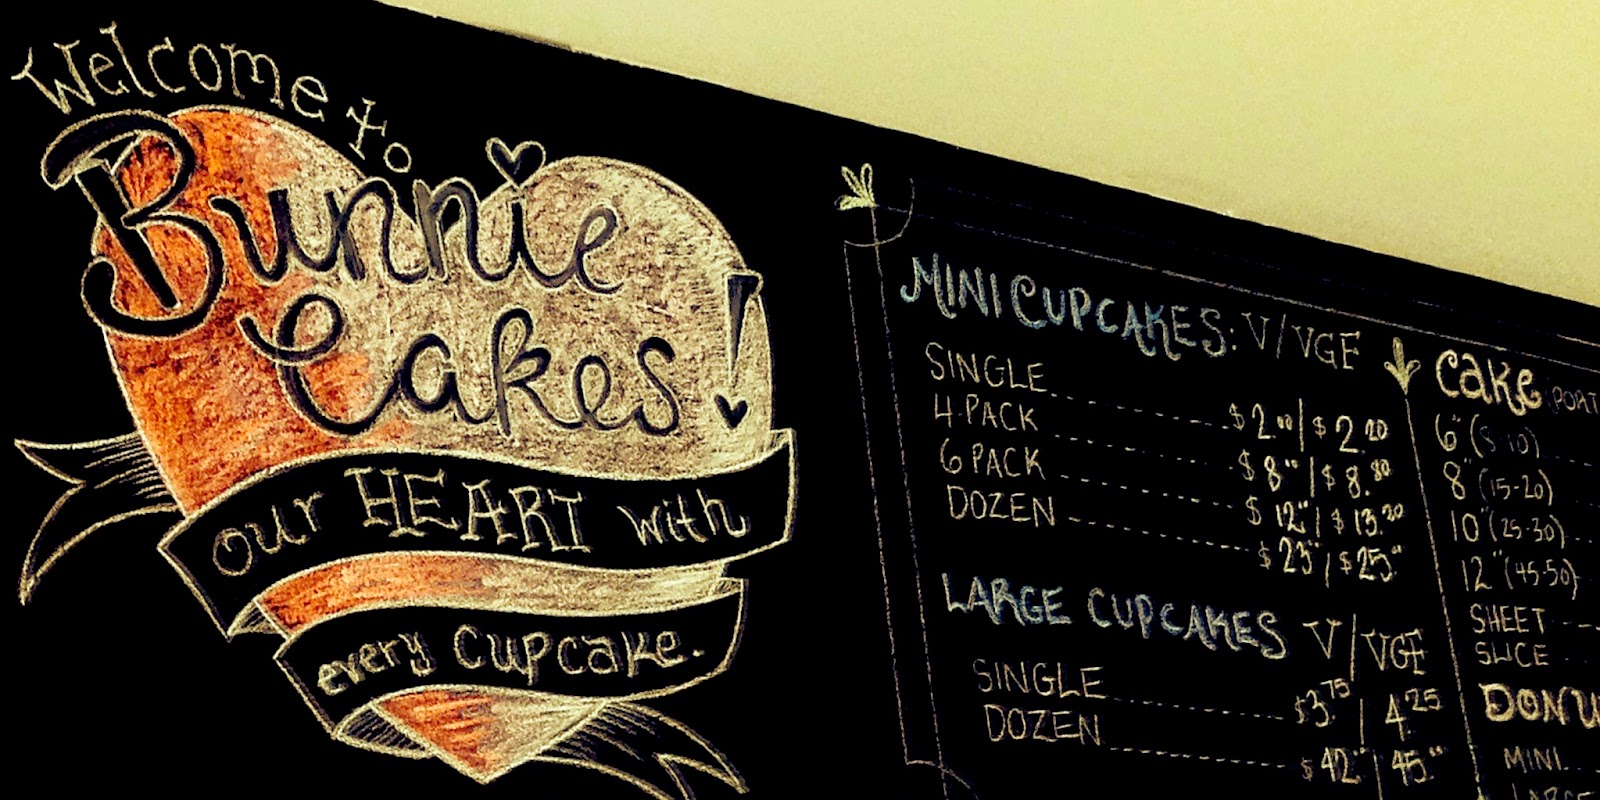 Welcome to
Bunnie
Cakes!
our HEART with
every cupcake.
MINI CUPCAKES: V/VGF
SINGLE $2.00/$2.20
4 PACK $8.00/$8.80
6 PACK $12.00/$13.20
DOZEN $23.00/$25.00
LARGE CUPCAKES V/VGF
SINGLE $3.75/4.25
DOZEN $42.00/45.00
Cake
6" (8-10)
8" (15-20)
10" (25-30)
12" (45-50)
SHEET
SLICE
MINI